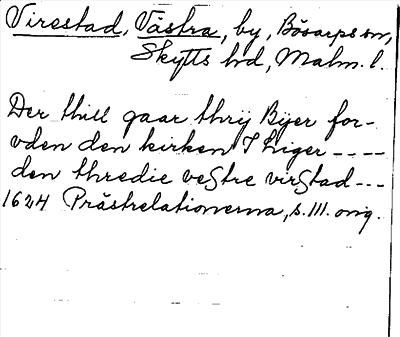 Virestad, Västra, by, Bösarps sn,
Skytts hd, Malm. l.
Der thill gaar thrij Bÿer for-
vden den kirken I liger ----
den thredie veStre virStad---
1624 Prästrelationerna, s. 111. orig.